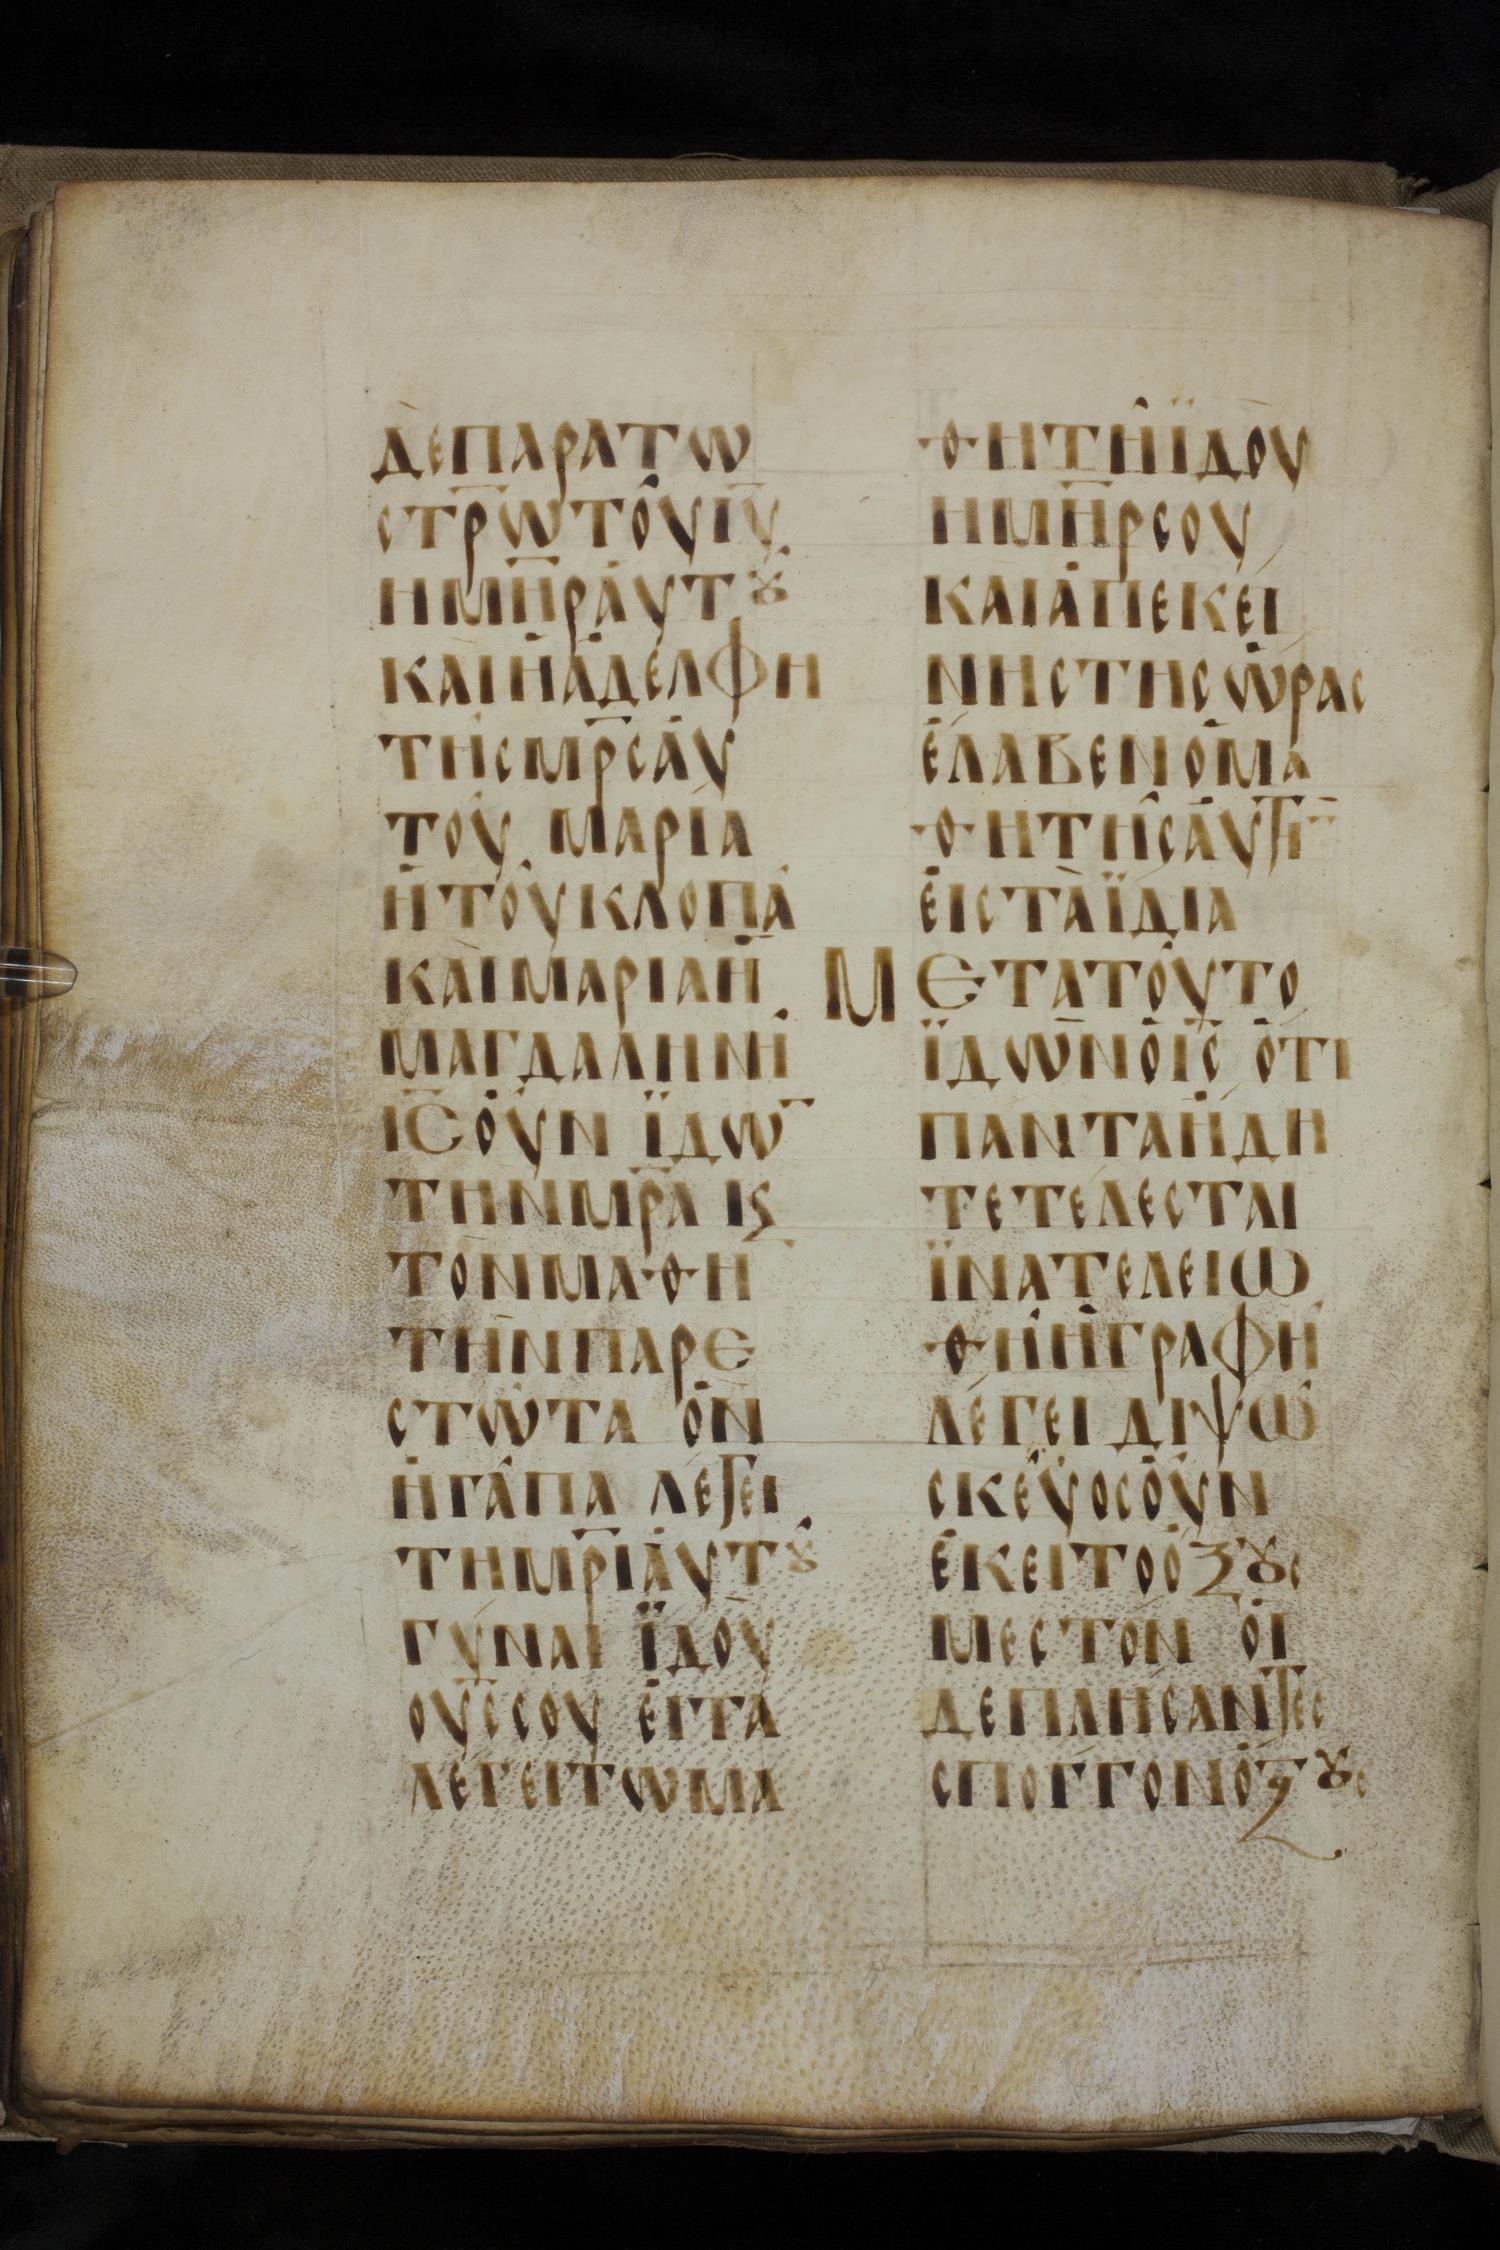 ΔΕΠΑΡΑΤΩ
ϹΤΡ̅ΩΤΟΥΙ̅Υ̅
ΗΜ̅Η̅ΡΑΥΤȢ
ΚΑΙΗΑΔΕΛΦΗ
ΤΗϹΜ̅Ρ̅ϹΑΥ
ΤΟΥ ΜΑΡΙΑ
ΗΤΟΥΚΛΟΠΑ
ΚΑΙΜΑΡΙΑΗ
ΜΑΓΔΑΛΗΝΗ
Ι̅Ϲ̅ΟΥΝ ΪΔΩ̅
ΤΗΝΜ̅Ρ̅Α Ιϛ
ΤΟΝΜΑΘΗ
ΤΗΝΠΑΡΕ
ϹΤΩΤΑ ΟΝ
ΗΓΑΠΑ ΛΕΓΕΙ
ΤΗΜ̅Ρ̅ΙΑΥΤȢ
ΓΥΝΑΙ ΪΔΟΥ
ΟΥ̅Ϲ̅ϹΟΥ ΕΙΤΑ
ΛΕΓΕΙΤΩΜΑ
ΘΗΤΗΪΔΟΥ
ΗΜ̅Η̅ΡϹΟΥ
ΚΑΙΑΠΕΚΕΙ
ΝΗϹΤΗϹΩΡΑϹ
ΕΛΑΒΕΝΟΜΑ
ΘΗΤΗϹΑΥΤΗ̅
ΕΙϹΤΑΪΔΙΑ
ΜΕΤΑΤΟΥΤΟ
ΪΔΩΝΟΙ̅Ϲ̅ ΟΤΙ
ΠΑΝΤΑΗΔΗ
ΤΕΤΕΛΕϹΤΑΙ
ΪΝΑΤΕΛΕΙΩ
ΘΗΗΓΡΑΦΗ
ΛΕΓΕΙ ΔΙΨΩ
ϹΚΕΥΟϹΟΥΝ
ΕΚΕΙΤΟΟΞȢϹ
ΜΕϹΤΟΝ ΟΙ
ΔΕΠΛΗϹΑΝΤΕϹ
ϹΠΟΓΓΟΝΟΞȢϹ